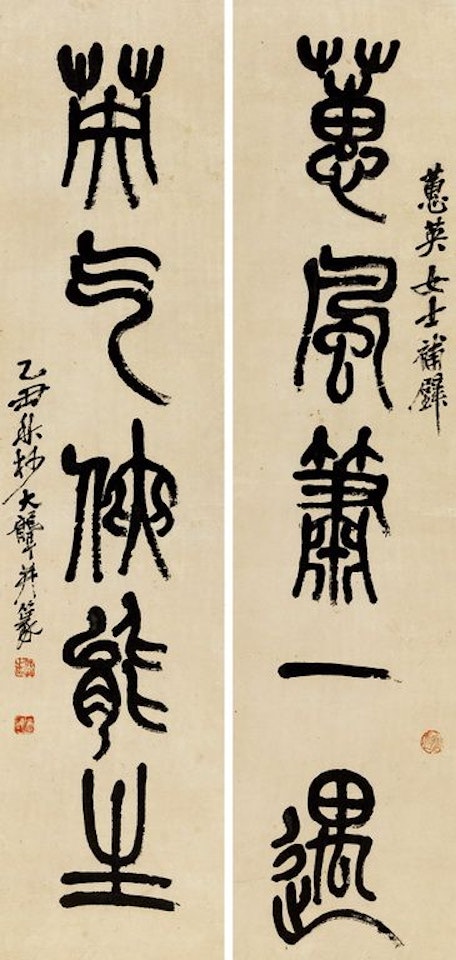 蕙英女士補壁
蕙風簫一遇
英气俠能生
乙丑秋杪大聾并篆